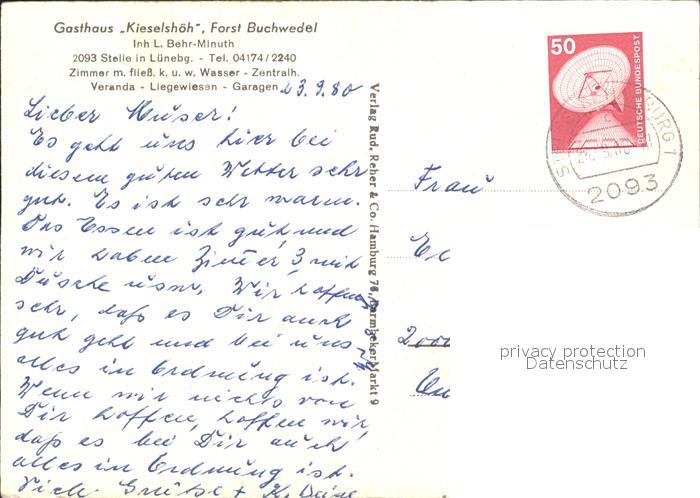 Gasthaus „Kieselshöh", Forst Buchwedel
Inh L. Behr-Minuth
2093 Stelle in Lünebg. - Tel. 04174/2240
Zimmer m. fließ. k. u. w. Wasser - Zentralh.
Veranda - Liegewiesen - Garagen
23.9.80
Lieber
Es geht uns hier bei
diesem guten Wetter sehr
gut. Es ist sehr warm.
Das Essen ist gut, und
wir haben Zimmer 3 mit
Dusche usw. Wir hoffen
sehr, daß es Dir auch
gut geht und bei uns
alles in Ordnung ist.
Wenn wir nichts von
Dir hoffen, hoffen wir,
daß es bei Dir auch
alles in Ordnung ist.
Viele Grüße +
Verlag Rud. Reher & Co. Hamburg 76, Barmbeker Markt 9
50
DEUTSCHE BUNDESPOST
BURG 1
2093
Frau
2000
privacy protection
Datenschutz